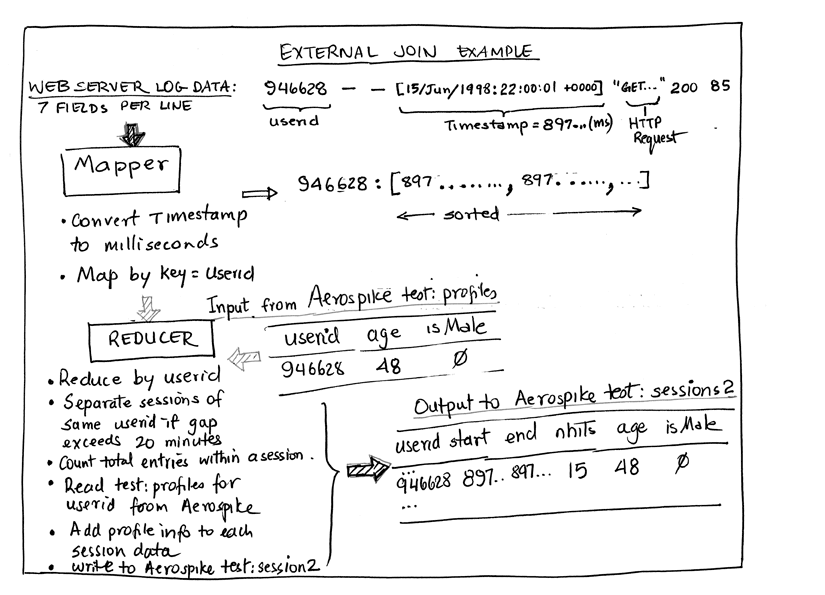 EXTERNAL JOIN EXAMPLE
WEB SERVER LOG DATA: 946628 – – [15/Jun/1998:22:00:01 +0000] "GET..." 200 85
7 FIELDS PER LINE
userid
Timestamp = 897...(ms)
HTTP
Request
Mapper
946628 : [897........, 897......, ...]
sorted
• Convert Timestamp
to milliseconds
• Map by key = Userid
Input from Aerospike test: profiles
REDUCER
userid age isMale
946628 48 Ø
• Reduce by userid
• Separate sessions of
same userid if gap
exceeds 20 minutes
• Count total entries within a session.
• Read test: profiles for
userid from Aerospike
• Add profile info to each
session data
• write to Aerospike test: session2
Output to Aerospike test: sessions2
userid start end nhits age isMale
...
946628 897.. 897... 15 48 Ø
...